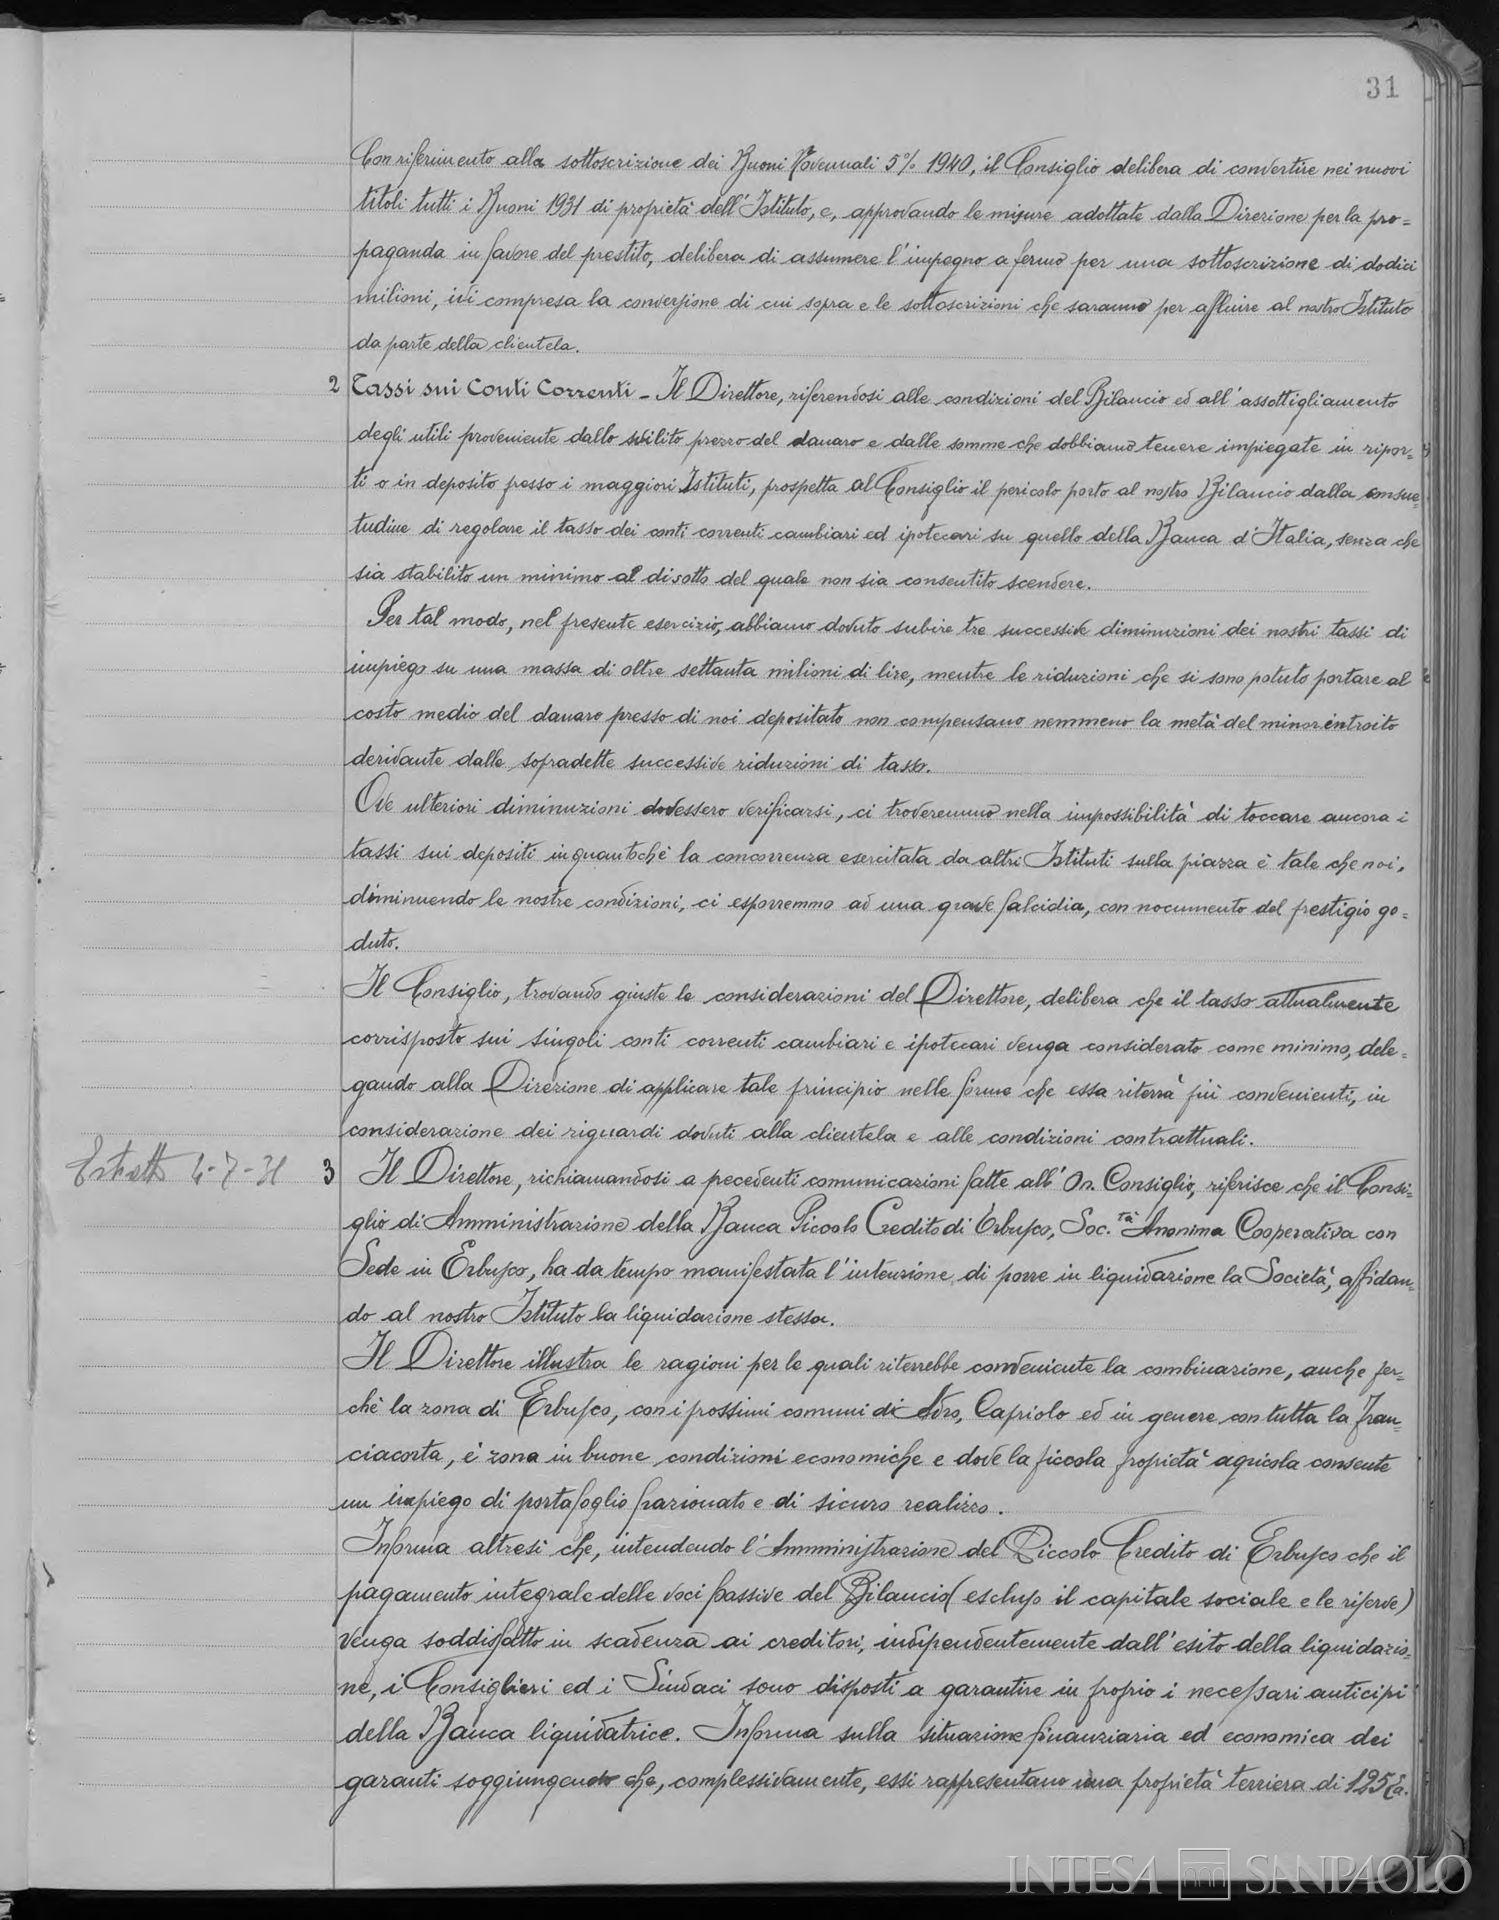 31
Con riferimento alla sottoscrizione dei Buoni Novennali 5% 1940, il Consiglio delibera di convertire nei nuovi
titoli tutti i Buoni 1931 di proprietà dell'Istituto, e, approvando le misure adottate dalla Direzione per la pro=
paganda in favore del prestito, delibera di assumere l'impegno a fermo per una sottoscrizione di dodici
milioni, ivi compresa la conversione di cui sopra e le sottoscrizioni che saranno per affluire al nostro Istituto
da parte della clientela.
2 Tassi sui Conti Correnti - Il Direttore, riferendosi alle condizioni del Bilancio ed all'assottigliamento
degli utili proveniente dallo svilito prezzo del danaro e dalle somme che dobbiamo tenere impiegate in ripor=
ti o in deposito presso i maggiori Istituti, prospetta al Consiglio il pericolo porto al nostro Bilancio dalla consue=
tudine di regolare il tasso dei conti correnti cambiari ed ipotecari su quello della Banca d'Italia, senza che
sia stabilito un minimo al disotto del quale non sia consentito scendere.
Per tal modo, nel presente esercizio, abbiamo dovuto subire tre successive diminuzioni dei nostri tassi di
impiego su una massa di oltre settanta milioni di lire, mentre le riduzioni che si sono potuto portare al
costo medio del danaro presso di noi depositato non compensano nemmeno la metà del minor introito
derivante dalle sopradette successive riduzioni di tasso.
Ove ulteriori diminuzioni dovessero verificarsi, ci troveremmo nella impossibilità di toccare ancora i
tassi sui depositi inquantoché la concorrenza esercitata da altri Istituti sulla piazza è tale che noi,
diminuendo le nostre condizioni, ci esporremmo ad una grave falcidia, con nocumento del prestigio go=
duto.
Il Consiglio, trovando giuste le considerazioni del Direttore, delibera che il tasso attualmente
corrisposto sui singoli conti correnti cambiari e ipotecari venga considerato come minimo, dele=
gando alla Direzione di applicare tale principio nelle forme che essa riterrà più convenienti, in
considerazione dei riguardi dovuti alla clientela e alle condizioni contrattuali.
Estratto 4-7-31
3 Il Direttore, richiamandosi a pecedenti comunicazioni fatte all'On. Consiglio, riferisce che il Consi=
glio di Amministrazione della Banca Piccolo Credito di Erbusco, Soc.tà Anonima Cooperativa con
Sede in Erbusco, ha da tempo manifestata l'intenzione di porre in liquidazione la Società, affidan=
do al nostro Istituto la liquidazione stessa.
Il Direttore illustra le ragioni per le quali riterrebbe conveniente la combinazione, anche per=
ché la zona di Erbusco, con i prossimi comuni di Adro, Capriolo ed in genere con tutta la Fran=
ciacorta, è zona in buone condizioni economiche e dove la piccola propietà agricola consente
un impiego di portafoglio frazionato e di sicuro realizzo.
Informa altresì che, intendendo l'Ammministrazione del Piccolo Credito di Erbusco che il
pagamento integrale delle voci passive del Bilancio (escluso il capitale sociale e le riserve)
venga soddisfatto in scadenza ai creditori, indipendentemente dall'esito della liquidazio=
ne, i Consiglieri ed i Sindaci sono disposti a garantire in proprio i necessari anticipi
della Banca liquidatrice. Informa sulla situazione finanziaria ed economica dei
garanti soggiungendo che, complessivamente, essi rappresentano una propietà terriera di 125 Ea.
INTESA SANPAOLO